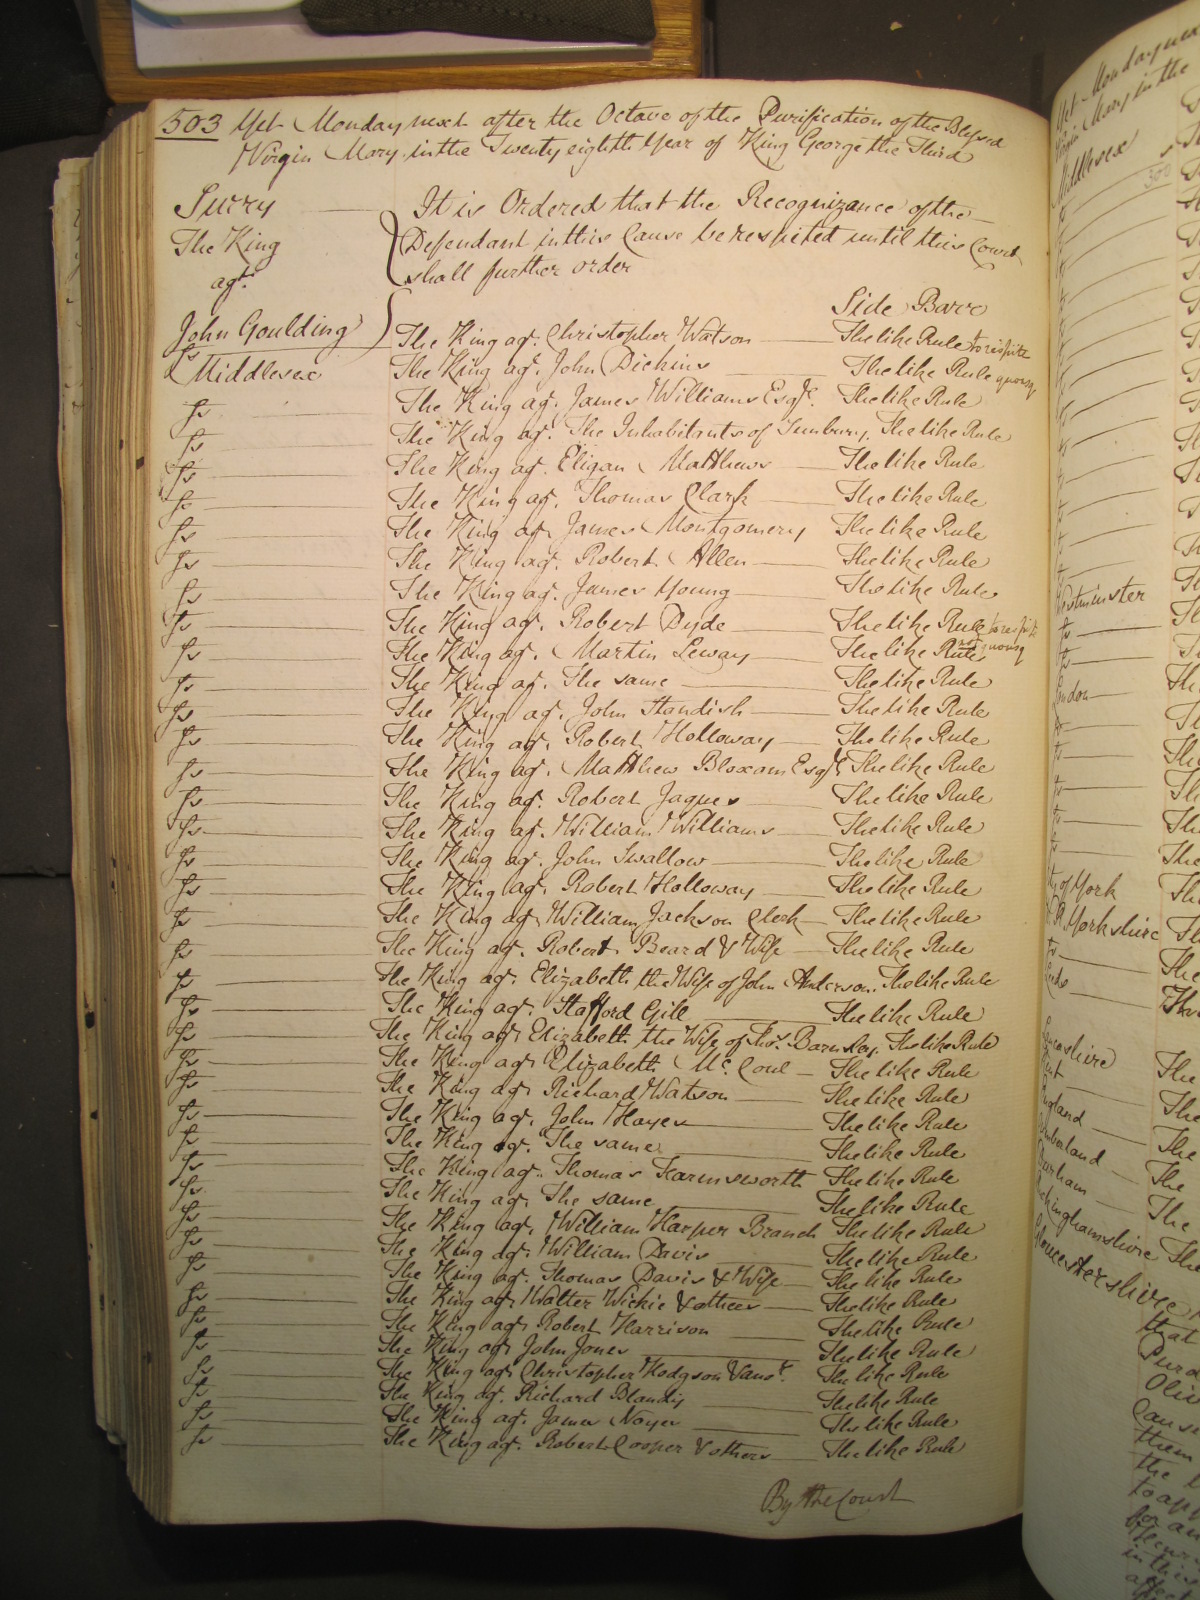 503 Yet Monday next after the Octave of the Purification of the Blessed
Virgin Mary in the Twenty eighth Year of King George the Third
Surry — It is Ordered that the Recognizance of the
The King Defendant in this Cause be respited until this Court
agt. shall further order
Side Barr
John Goulding
The King agt. Christopher Watson — The like Rule to respite
Middlesex The King agt. John Dickins — The like Rule quousq
So — The King agt. James Williams Esqr. The like Rule
So — The King agt. The Inhabitants of Sunbury. The like Rule
So — The King agt. Eligan Matthews — The like Rule
So — The King agt. Thomas Clark — The like Rule
So — The King agt. James Montgomery The like Rule
So — The King agt. Robert Allen — The like Rule
So — The King agt. James Young — The like Rule
So — The King agt. Robert Dyde — The like Rule to respite
So — The King agt. Martin Leway — The like Rule quousq
So — The King agt. The same — The like Rule
So — The King agt. John Standish — The like Rule
So — The King agt. Robert Holloway — The like Rule
So — The King agt. Matthew Bloxam Esqr. The like Rule
So — The King agt. Robert Jaques — The like Rule
So — The King agt. William Williams — The like Rule
So — The King agt. John Swallow — The like Rule
So — The King agt. Robert Holloway — The like Rule
So — The King agt. William Jackson Clerk — The like Rule
So — The King agt. Robert Beard & Wife — The like Rule
So — The King agt. Elizabeth the Wife of John Anderson. The like Rule
So — The King agt. Stafford Gill — The like Rule
So — The King agt. Elizabeth the Wife of Thos. Barnsley. The like Rule
So — The King agt. Elizabeth McCoul — The like Rule
So — The King agt. Richard Watson — The like Rule
So — The King agt. John Hayes — The like Rule
So — The King agt. The same — The like Rule
So — The King agt. Thomas Farmsworth The like Rule
So — The King agt. The same — The like Rule
So — The King agt. William Harper Branch The like Rule
So — The King agt. William Davis — The like Rule
So — The King agt. Thomas Davis & Wife — The like Rule
So — The King agt. Walter Wickie & others — The like Rule
So — The King agt. Robert Harrison — The like Rule
So — The King agt. John Jones — The like Rule
So — The King agt. Christopher Hodgson & anor. The like Rule
So — The King agt. Richard Blandy — The like Rule
So — The King agt. James Noyer — The like Rule
So — The King agt. Robert Cooper & others — The like Rule
By the Court
Yet Monday next
Virgin Mary in the
Middlesex
Westminster
London
City of York
Yorkshire
Leeds
Lancashire The
Kent The
England The
Cumberland The
Durham The
Buckinghamshire The
Gloucestershire
that